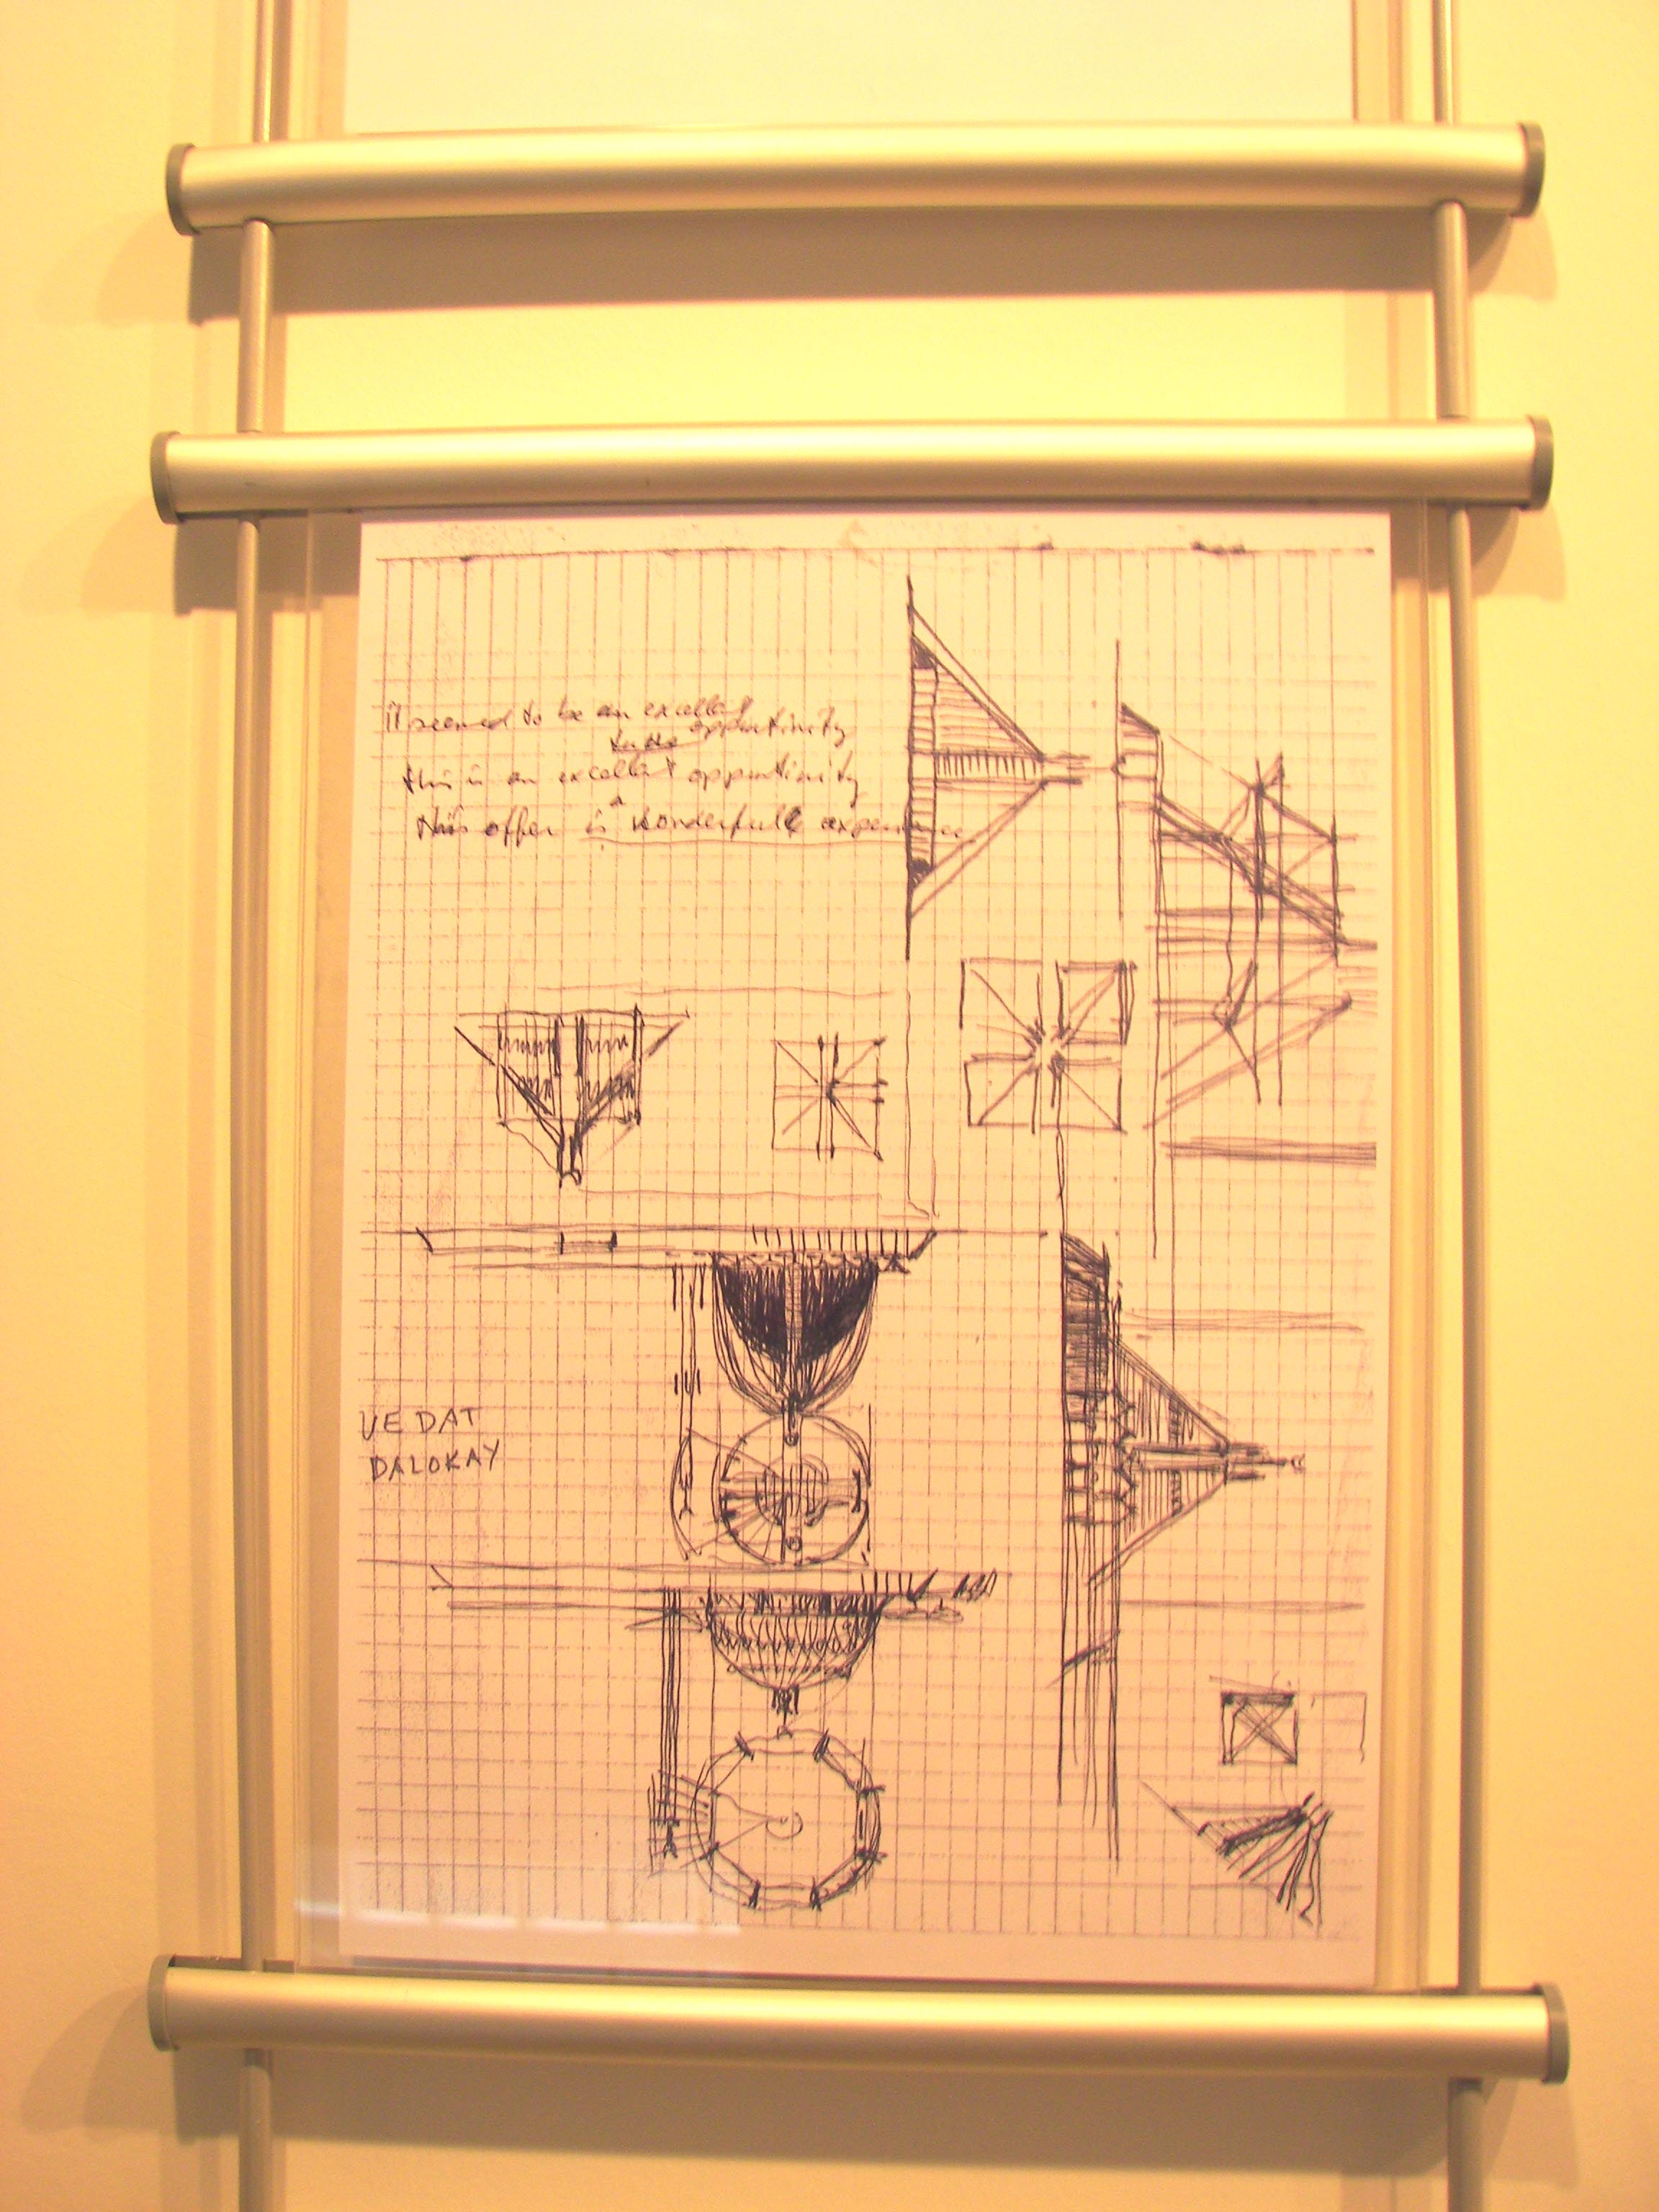 it seemed to be an excellent
opportinity
this is an excellent opportinity
this offer is a wonderfull experience
VEDAT
DALOKAY